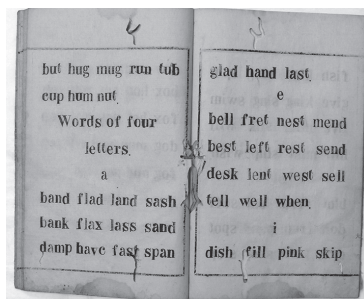 but hug mug run tub
cup hum nut.
Words of four
letters.
a
band flad land sash
bank flax lass sand
damp have fast span
glad hand last.
e
bell fret nest mend
best left rest send
desk lent west sell
tell well when.
i
dish fill pink skip